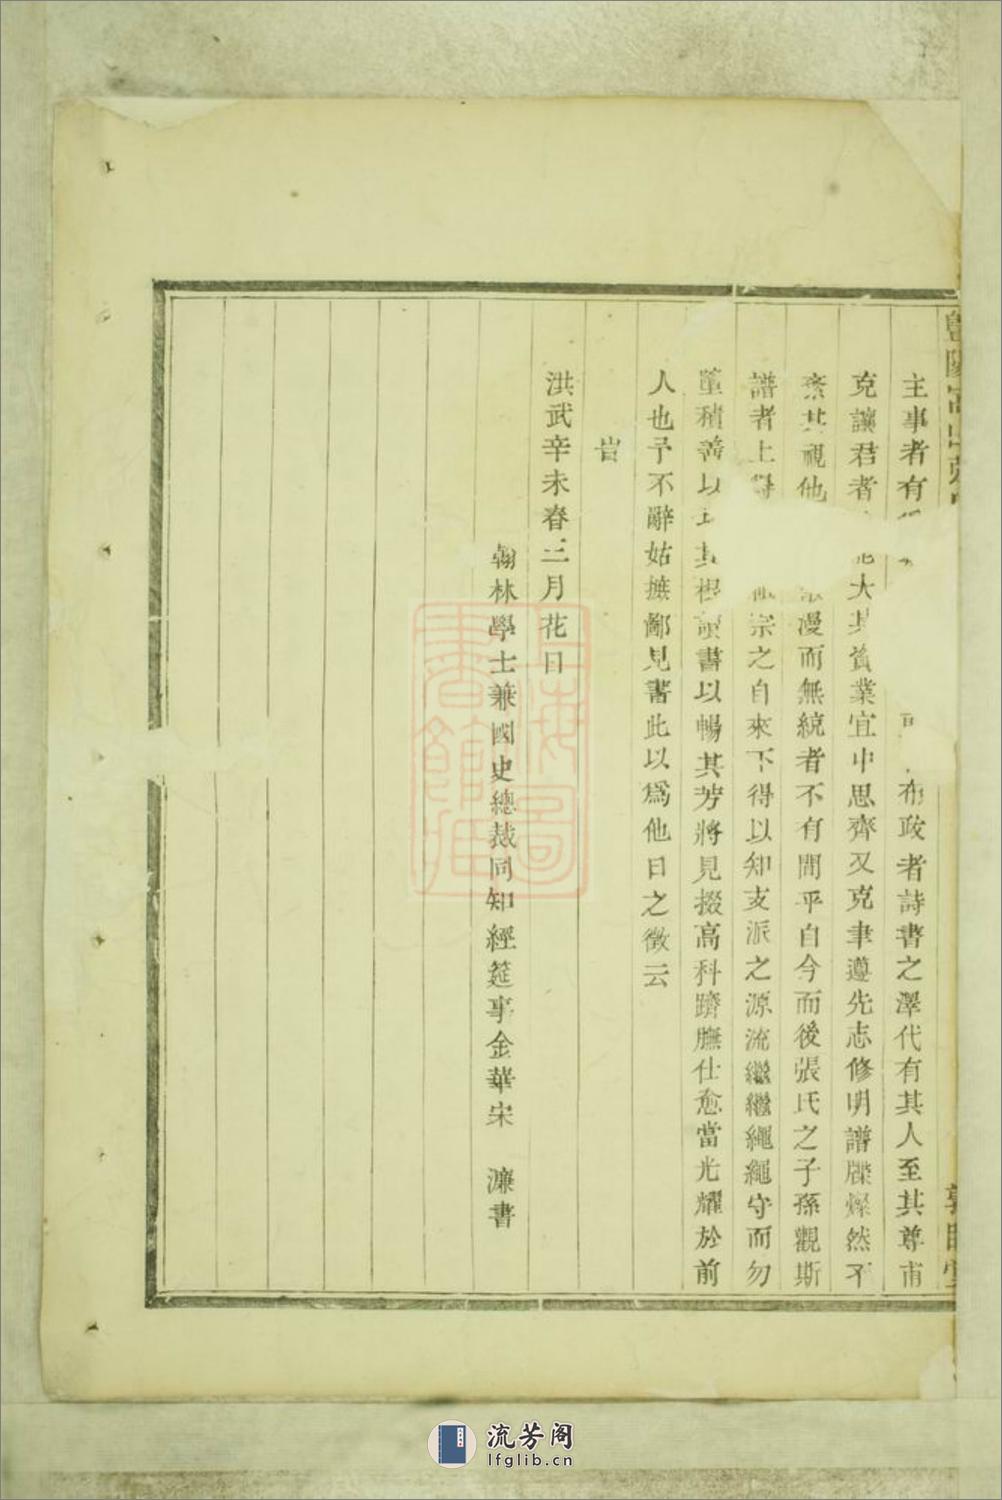 主事者有布政者詩書之澤代有其人至其尊甫
克讓君者大其質業宜中思齊又克聿遵先志修明譜牒燦然不
紊其視他漫而無統者不有間乎自今而後張氏之子孫觀斯
譜者上得宗之自來下得以知支派之源流繼繼繩繩守而勿
墜積善以其根讀書以暢其芳將見掇高科躋膴仕愈當光耀於前
人也予不辭姑撫鄙見書此以為他日之徵云
旹
洪武辛未春三月花日
翰林學士兼國史總裁同知經筵事金華宋 濂書
上海圖書館藏
流芳阁
lfglib.cn